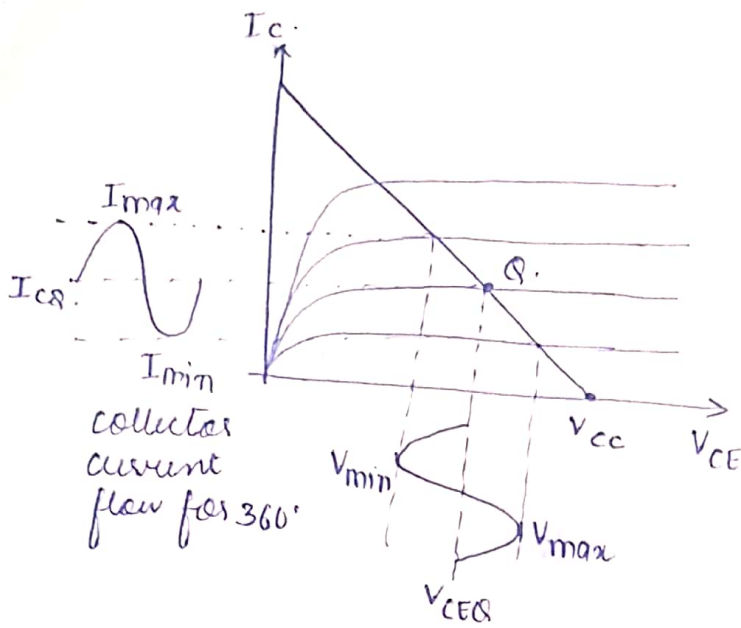 Ic.
Imax
Q.
ICQ.
Imin
VCC
VCE
collector
current
flow for 360°
Vmin
Vmax
VCEQ